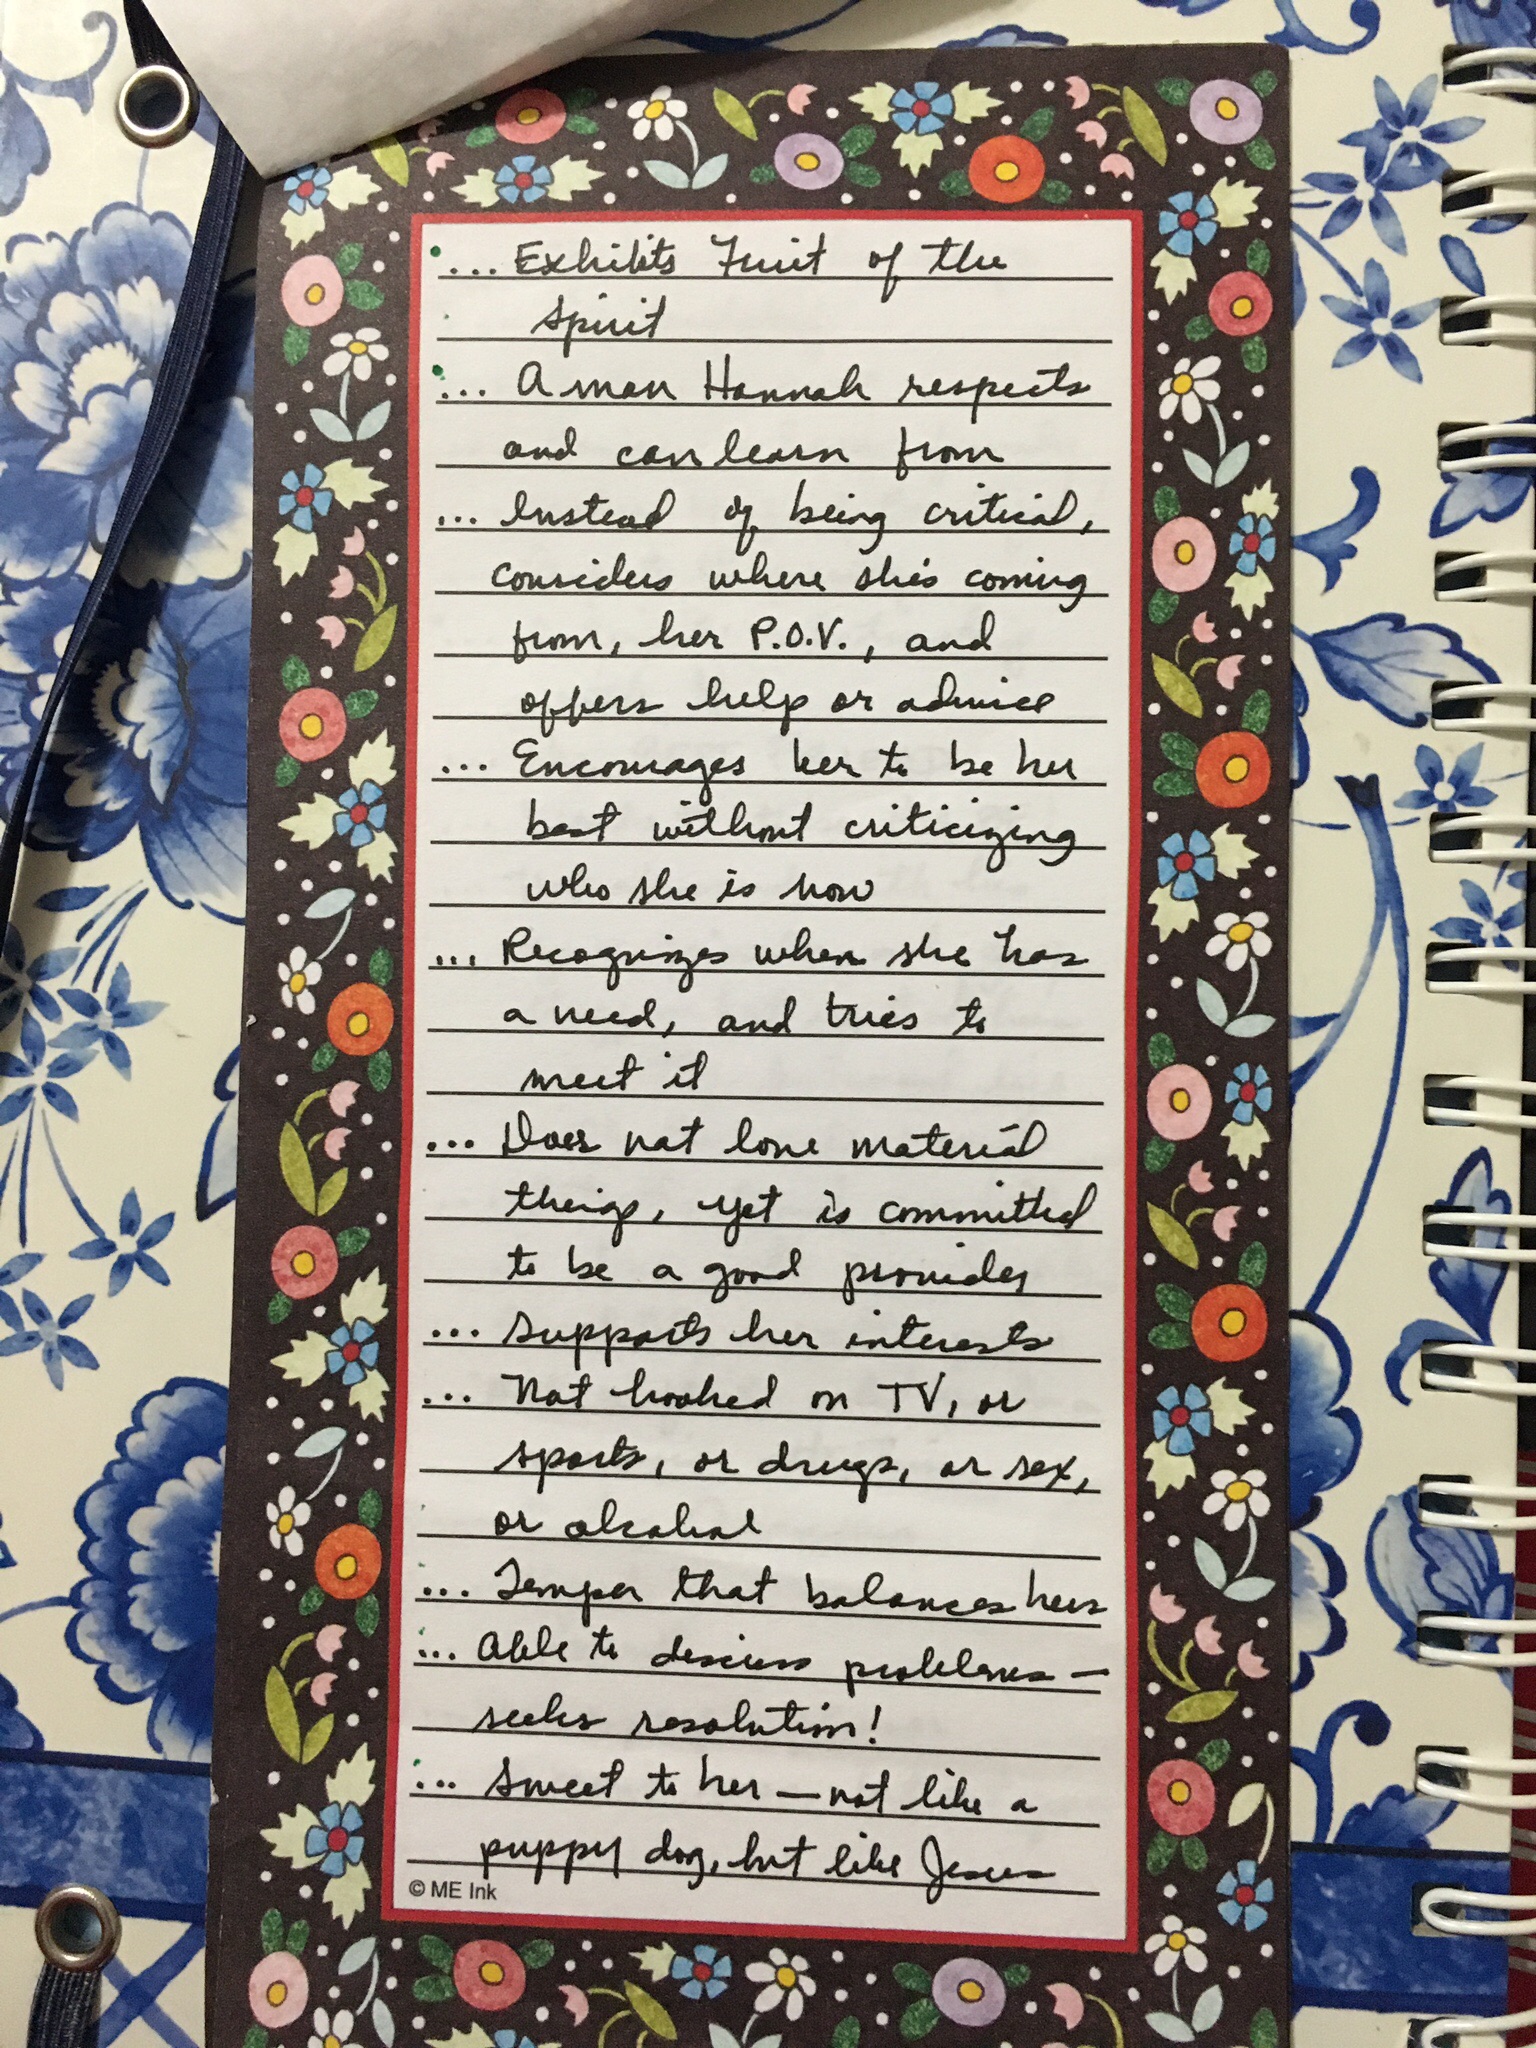 ... Exhibits Fruit of the
spirit
... A man Hannah respects
and can learn from
... Instead of being critical,
considers where she's coming
from, her P.O.V., and
offers help or advice
... Encourages her to be her
best without criticizing
who she is now
... Recognizes when she has
a need, and tries to
meet it
... Does not love material
things, yet is committed
to be a good provider
... Supports her interests
... Not hooked on TV, or
sports, or drugs, or sex,
or alcohol
... Temper that balances hers
... Able to discuss problems —
seeks resolution!
... Sweet to her — not like a
puppy dog, but like Jesus
© ME Ink